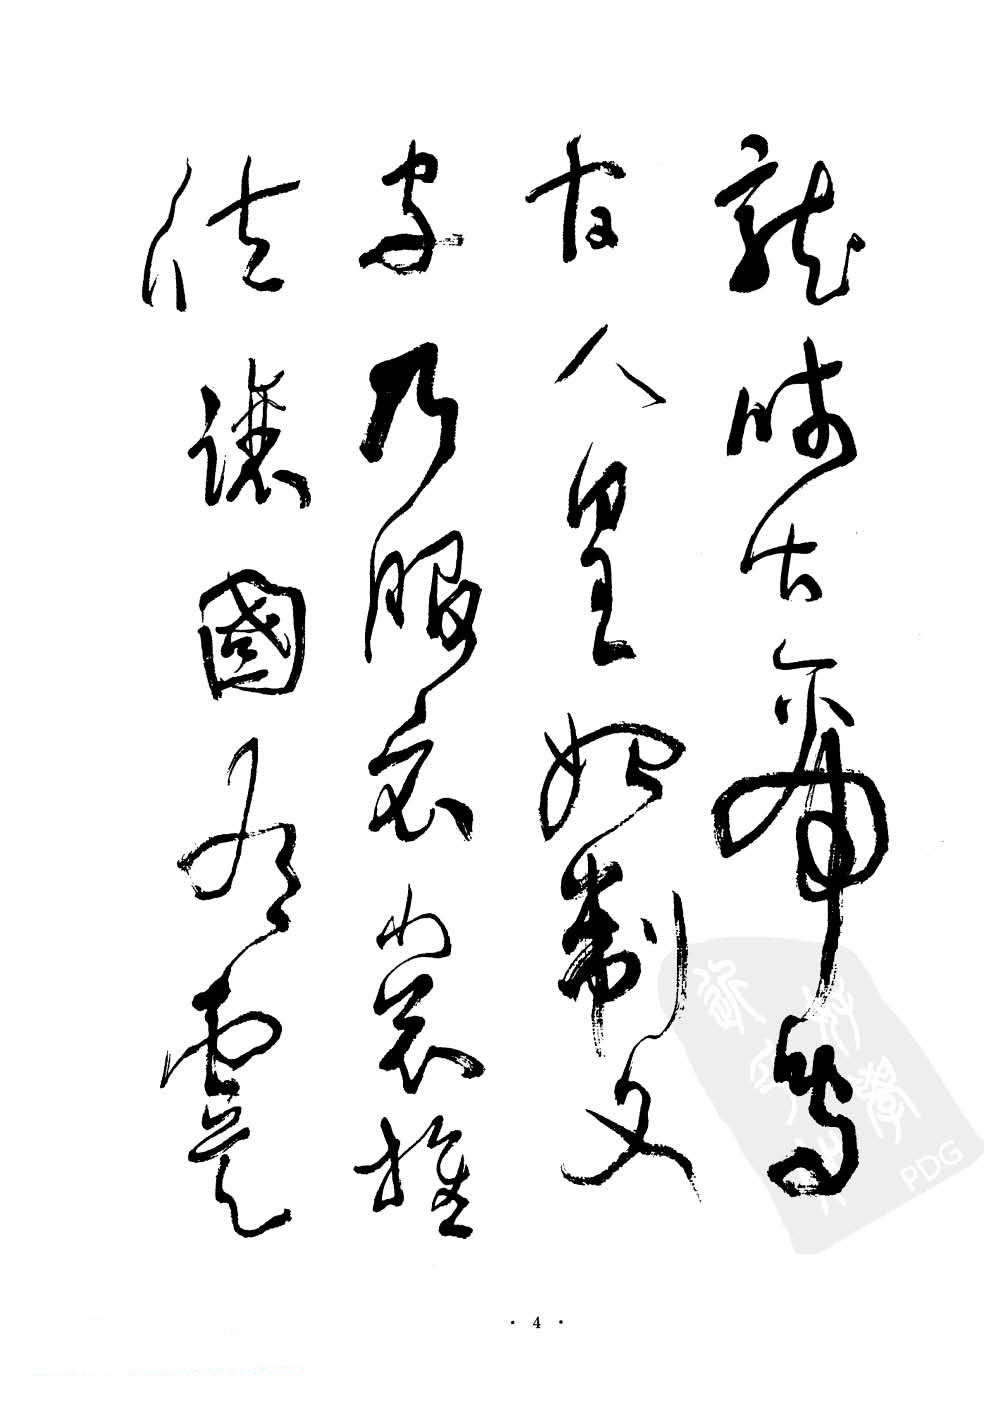 龍師火帝鳥
官人皇始制文
字乃服衣裳推
位讓國有虞
· 4 ·
PDG